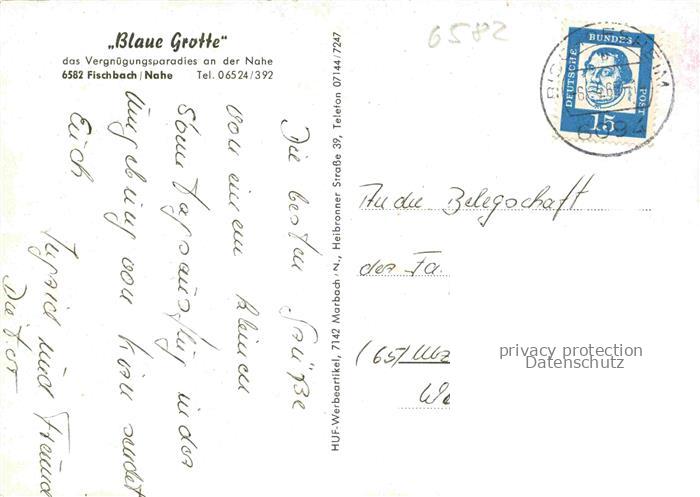 „Blaue Grotte"
das Vergnügungsparadies an der Nahe
6582 Fischbach/Nahe Tel. 06524/392
6582
DEUTSCHE BUNDES POST
15
6094
Die besten Grüße
von einem kleinen
Sonntagsausflug in der
Umgebung von hier sendet
Euch
Ingrid und Freund
Dieter
HUF-Werbeartikel, 7142 Marbach/N., Heilbronner Straße 39, Telefon 07144/7247
An die Belegschaft
der Fa.
(65)
privacy protection
Datenschutz